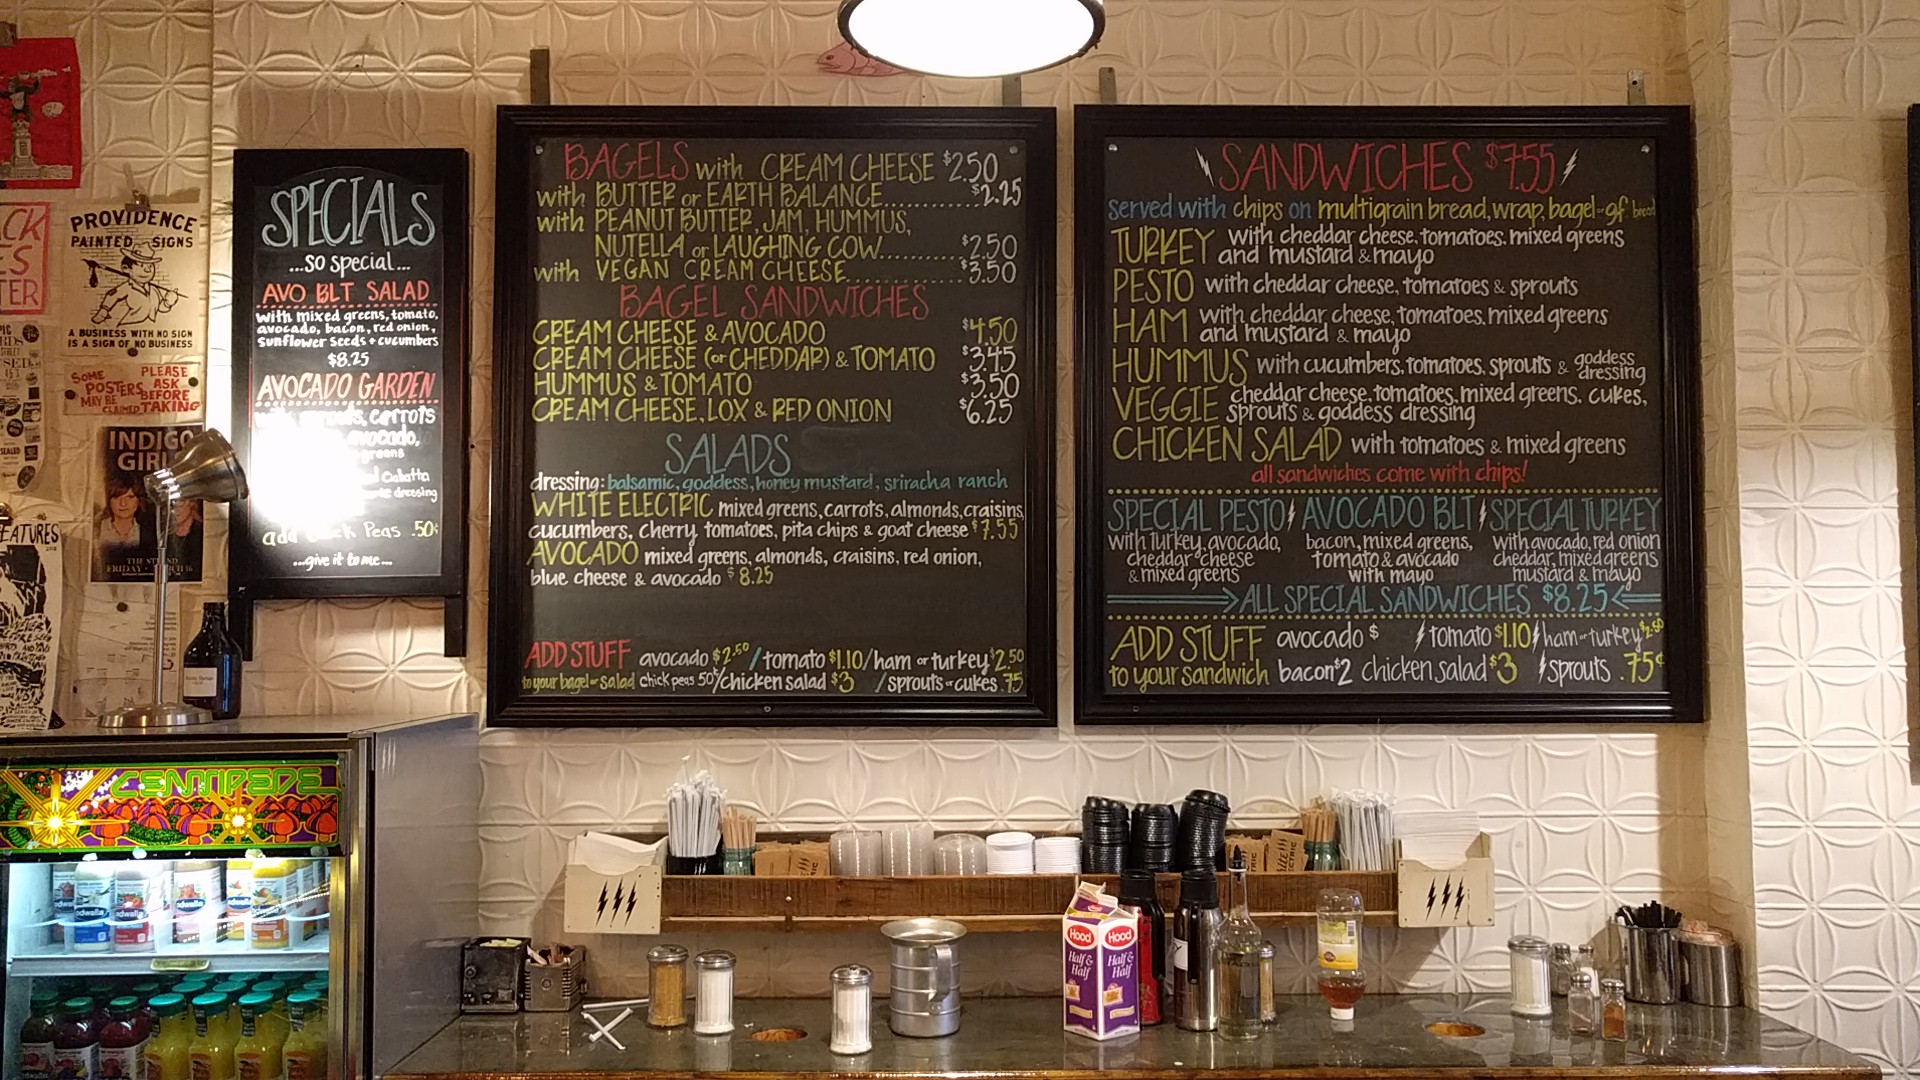 PROVIDENCE
PAINTED SIGNS
A BUSINESS WITH NO SIGN
IS A SIGN OF NO BUSINESS
SOME
POSTERS
MAY BE
CLAIMED
PLEASE
ASK
BEFORE
TAKING
INDIGO
GIRLS
SPECIALS
...so special...
AVO BLT SALAD
with mixed greens, tomato,
avocado, bacon, red onion,
sunflower seeds + cucumbers
$8.25
AVOCADO GARDEN
carrots
avocado,
greens
Ciabatta
dressing
add Peas .50¢
...give it to me...
BAGELS with CREAM CHEESE $2.50
with BUTTER or EARTH BALANCE..........$2.25
with PEANUT BUTTER, JAM, HUMMUS,
NUTELLA or LAUGHING COW..........$2.50
with VEGAN CREAM CHEESE..........$3.50
BAGEL SANDWICHES
CREAM CHEESE & AVOCADO $4.50
CREAM CHEESE (or CHEDDAR) & TOMATO $3.45
HUMMUS & TOMATO $3.50
CREAM CHEESE, LOX & RED ONION $6.25
SALADS
dressing: balsamic, goddess, honey mustard, sriracha ranch
WHITE ELECTRIC mixed greens, carrots, almonds, craisins,
cucumbers, cherry tomatoes, pita chips & goat cheese $7.55
AVOCADO mixed greens, almonds, craisins, red onion,
blue cheese & avocado $8.25
ADD STUFF avocado $2.50 / tomato $1.10 / ham or turkey $2.50
to your bagel or salad chick peas .50¢ / chicken salad $3 / sprouts or cukes .75
SANDWICHES $7.55
served with chips on multigrain bread, wrap, bagel or gf bread
TURKEY with cheddar cheese, tomatoes, mixed greens
and mustard & mayo
PESTO with cheddar cheese, tomatoes & sprouts
HAM with cheddar cheese, tomatoes, mixed greens
and mustard & mayo
HUMMUS with cucumbers, tomatoes, sprouts & goddess dressing
VEGGIE cheddar cheese, tomatoes, mixed greens, cukes,
sprouts & goddess dressing
CHICKEN SALAD with tomatoes & mixed greens
all sandwiches come with chips!
SPECIAL PESTO
with turkey, avocado,
cheddar cheese
& mixed greens
AVOCADO BLT
bacon, mixed greens,
tomato & avocado
with mayo
SPECIAL TURKEY
with avocado, red onion
cheddar, mixed greens
mustard & mayo
ALL SPECIAL SANDWICHES $8.25
ADD STUFF avocado $ tomato $1.10 ham or turkey $2.50
to your sandwich bacon $2 chicken salad $3 sprouts .75¢
CENTIPEDE
Hood
Half &
Half
Hood
Half &
Half